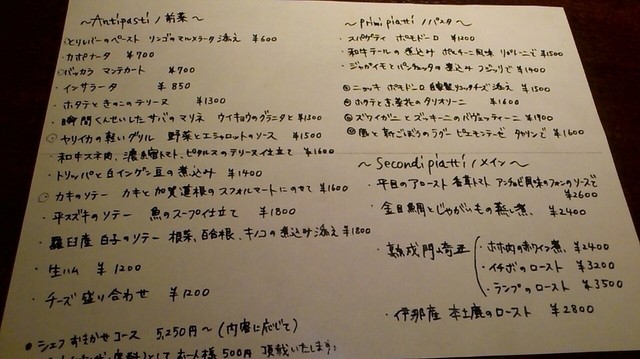 ～Antipasti / 前菜～
・とりレバーのペースト リンゴのマルメラータ添え ¥600
・カポナータ ¥700
・バッカラ マンテカート ¥700
・インサラータ ¥850
・ホタテときのこのテリーヌ ¥1300
・瞬間くんせいしたサバのマリネ ウイキョウのグラニータと ¥1300
・ヤリイカの軽いグリル 野菜とエシャロットのソース ¥1500
・和牛スネ肉、濃縮トマト、ピタルスのテリーヌ仕立て ¥1600
・トリッパと白インゲン豆の煮込み ¥1400
・カキのソテー カキと加賀蓮根のスフォルマートにのせて ¥1600
・平スズキのソテー 魚のスープ仕立て ¥1800
・羅臼産 白子のソテー 根菜、百合根、キノコの煮込み添え ¥1800
・生ハム ¥1200
・チーズ盛り合わせ ¥1200
● シェフおまかせコース 5,250円～(内容に応じて)
として お一人様500円 頂戴いたします
～Primi piatti / パスタ～
・スパゲティ ポモドーロ ¥1200
・和牛テールの煮込み ポルチーニ風味 リガトーニで ¥1500
・ジャガイモとパンチェッタの煮込み フジッリで ¥1400
・ニョッキ ポモドーロ 自家製リコッタチーズ添え ¥1500
・ホタテとお菜花のタリオリーニ ¥1600
・ズワイガニとズッキーニのパヴェッティーニ ¥1900
・鴨と新ごぼうのラグー ピエモンテーゼ タヤリンで ¥1600
～Secondi piatti / メイン～
・平目のアロースト 香草トマト アンチョビ風味のフォンのソースで ¥2600
・金目鯛とじゃがいもの蒸し煮 ¥2400
・熟成 門崎丑
・ホホ肉の赤ワイン煮 ¥2400
・イチボのロースト ¥3200
・ランプのロースト ¥3500
・伊那産 本土鹿のロースト ¥2800